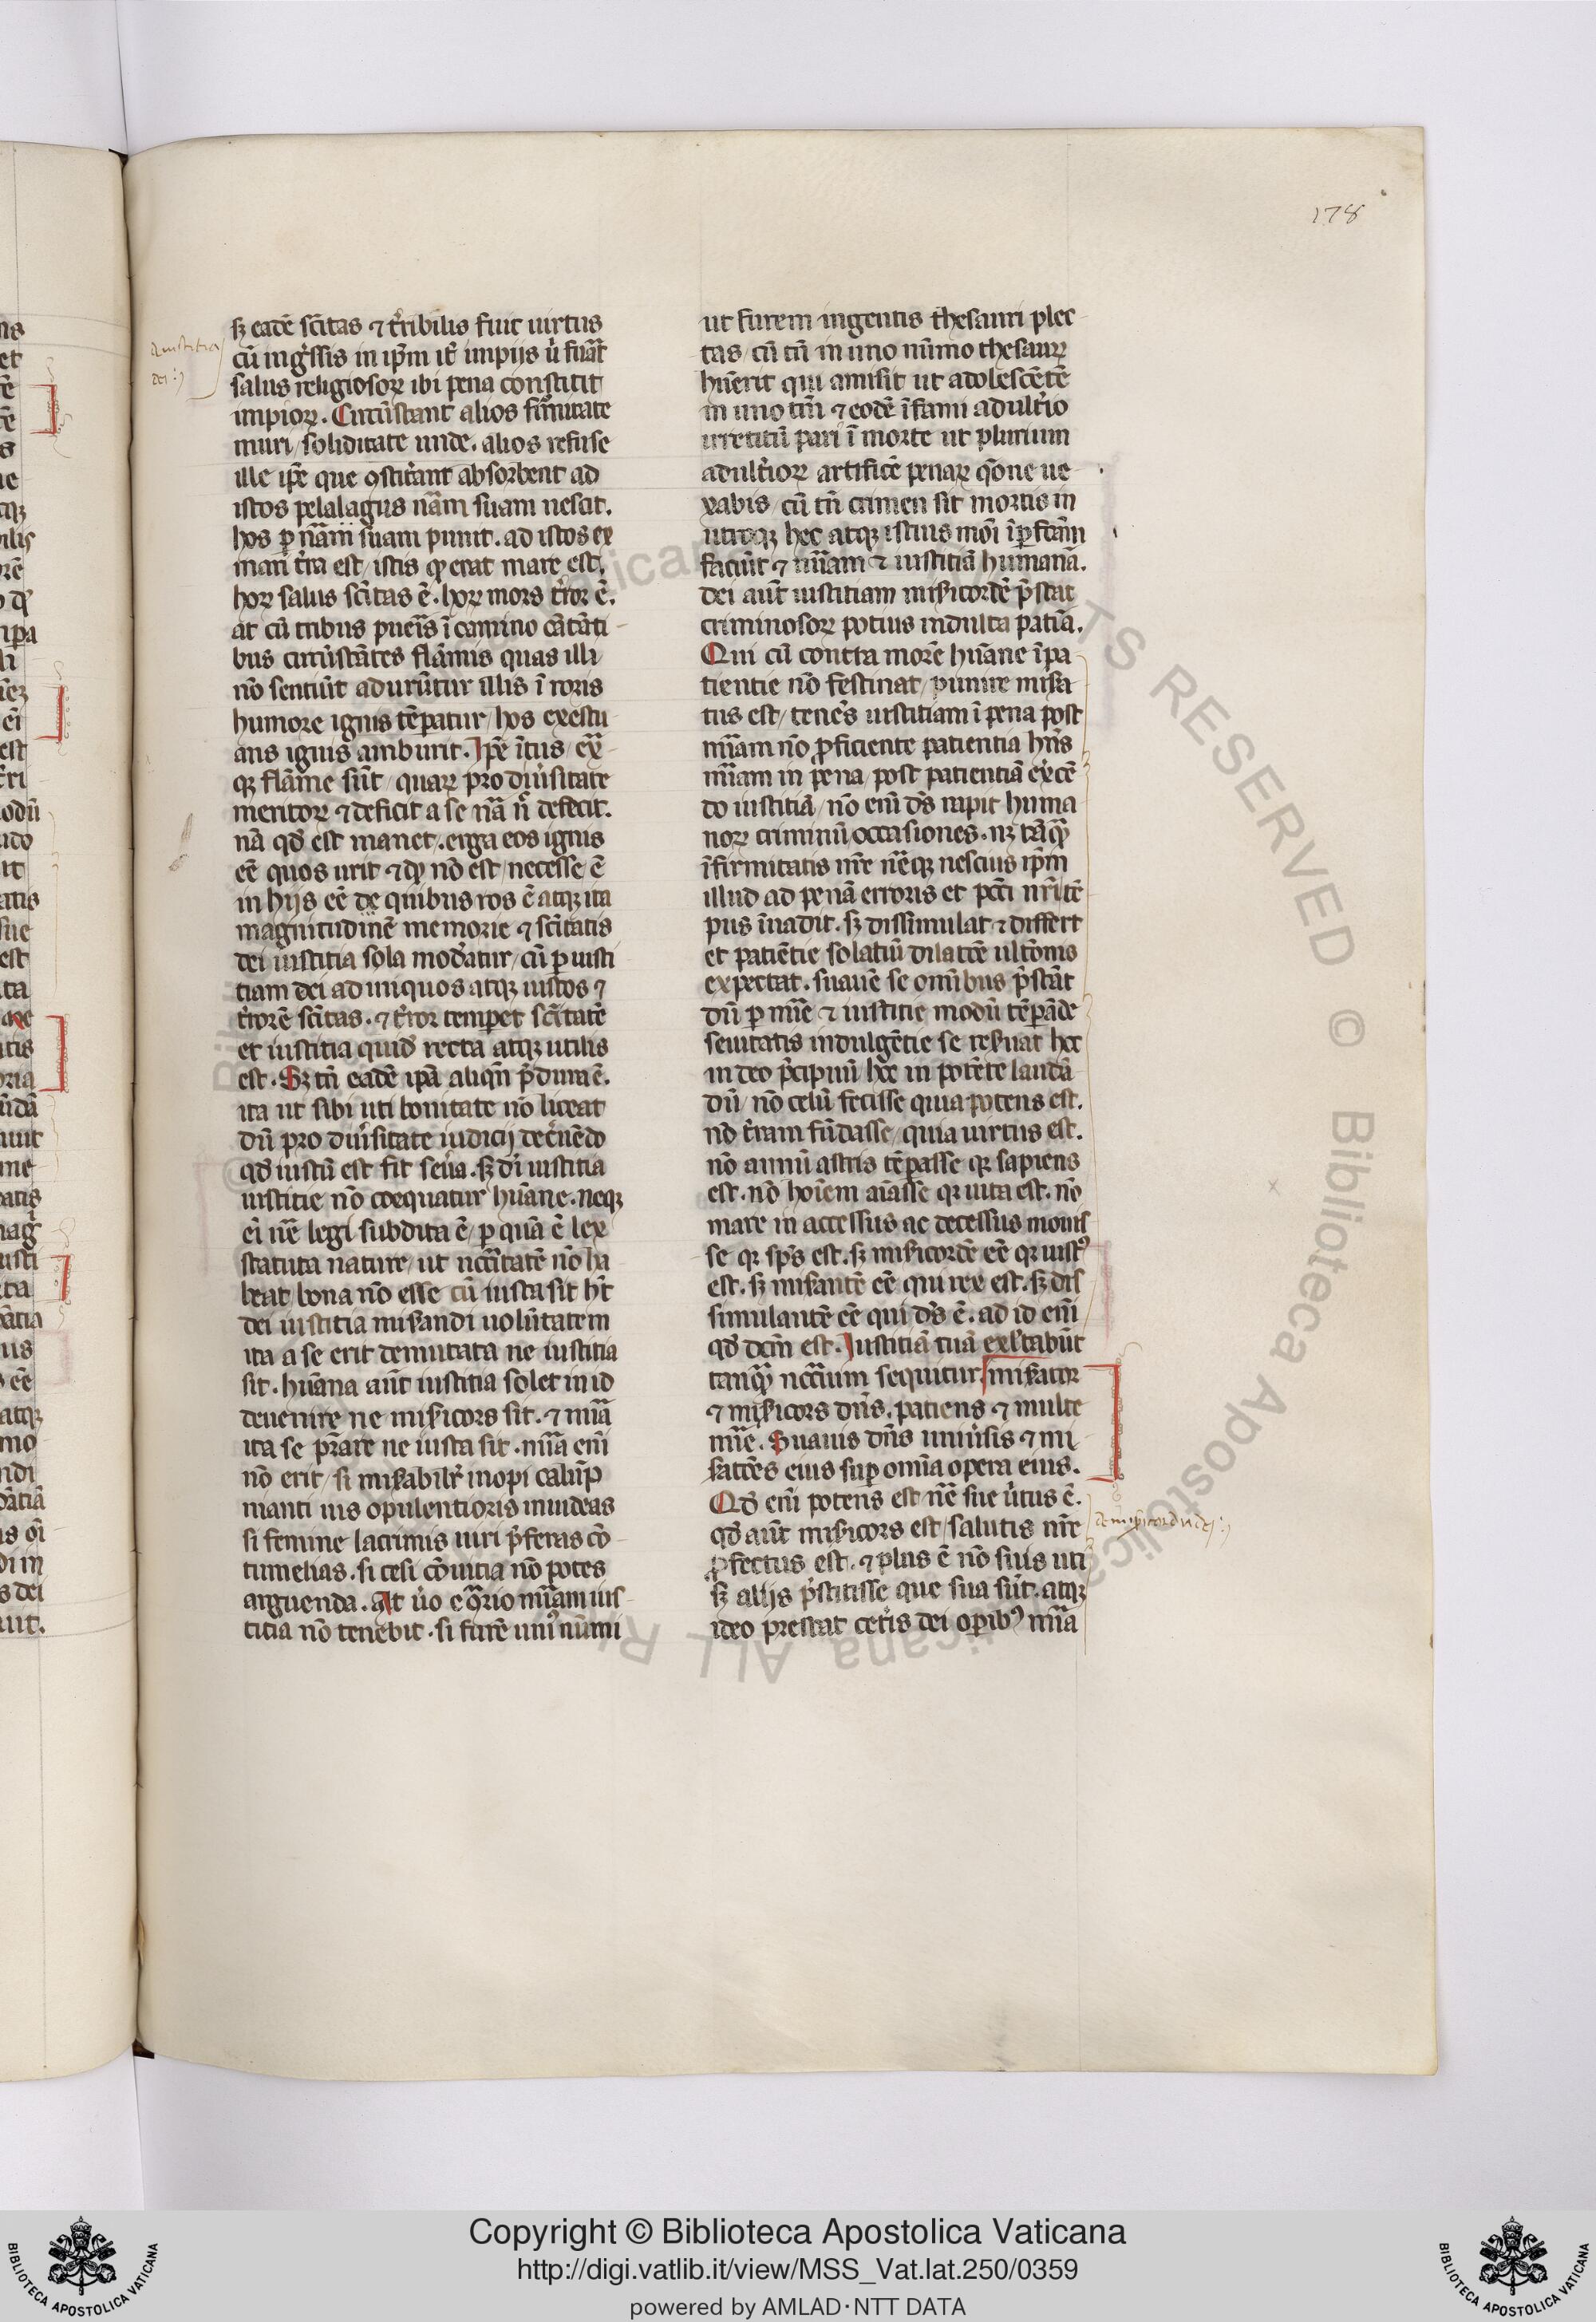 178
sꝫ eadē sc̄itas ⁊ t͛ribilis fuit uirtus
cū ing͛ssis in ip̄m it͛ impijs u͛ fuāt
salus religiosoꝝ ibi pena constitit
impioꝝ. Circūstant alios firmitate
muri / soliditate unde. alios refuse
ille ip̄e que ꝯstit͛ant absorbent ad
istos pelalagus nām suam nescit.
hos ꝑ nām suam punit. ad istos ex
mari t͛ra est / istis ꝙ erat mare est.
hoꝝ salus sc̄itas ē. hoꝝ mors t͛ror ē.
at cū tribus pueris ī camino cātāti
bus circūstātes flāmis quas illi
nō sentiūt adurūtur illis ī roris
humore ignis tēpatur / hos exestu
ans ignis amburit. Ip̄e ītus / ex̄
qꝫ flāme sūt / quaꝝ pro diu͛sitate
meritoꝝ ⁊ deficit a se nā nͨ defecit.
nā qd̄ est manet. erga eos ignis
eē quos urit ⁊ ꝙ nō est / necesse ē
in hijs eē de quibus ros ē atqꝫ ita
magnitudinē memorie ⁊ sc̄itatis
dei iustitia sola mod͛atur / cū ꝑ iusti
tiam dei ad iniquos atqꝫ iustos ⁊
t͛rorē sc̄itas. ⁊ t͛ror temperet sc̄itatē
et iustitia quid recta atqꝫ utilis
est. Sꝫ tn̄ eadē ip̄a aliqn̄ p͛dura ē.
ita ut sibi uti bonitate nō liceat
dū pro diu͛sitate iudicij dec͛nēdo
qd̄ iustū est fit seu͛a. sꝫ di͛ iustitia
iustitie nō coequatur hūane. neqꝫ
ei͛ nē legi subdita ē / ꝑ quā ē lex
statuta nature / ut nccītatē nō ha
beat bona nō esse cū iusta sit h͛t
dei iustitia mis͛andi uolūtatem
ita a se erit demutata ne iustitia
sit. hūana aūt iustitia solet in id
deuenire ne mis͛icors sit. ⁊ mīa
ita se pr̄are ne iusta sit. mīa eni͛
nō erit / si mis͛abilr͛ inopi calūp
nianti ius opulentioris inuideas
si femine lacrimis uiri p͛feras cō
tumelias. si cesi cōuitia nō potes
arguenda. At u͛o e ꝯ͛rio mīam ius
titia nō tenebit. si furē uniꝰ nūmi
ut furem ingentis thesauri plec
tas / cū tn̄ in uno nūmo thesaurꝫ
hūerit qui amisit ut adolescētē
in uno tm̄ ⁊ eodē īfami adult͛io
irretitū pari ī morte ut plurium
adult͛ioꝝ artificē penaꝝ q̄one ue
xabis / cū tn̄ crimen sit mortis in
utroqꝫ hec atqꝫ istius mōi īꝑfcām
faciūt ⁊ mīam ⁊ iustitiā humanā.
dei aūt iustitiam mis͛icordē p͛stat
criminosoꝝ potius indulta patiā.
Qui cū contra morē hūane īpa
tientie nō festinat / punire mis͛a
tus est / tene͛s iustitiam ī pena post
mīam nō ꝓficiente patientia hn̄s
mīam in pena / post patientiā ex͛cē
do iustitiā / nō eni͛ ds̄ rapit huma
noꝝ criminū occasiones. nꝫ tāꝙ͛
īfirmitatis nr̄e nēqꝫ nescius ip̄m
illud ad penā erroris et pcc̄i nr̄i tē
pus īuadit. sꝫ dissimulat ⁊ differt
et patiētie solatiū dilatōe ultōnis
expectat. suauē se omībus p͛stāt
dū ꝑ mīe ⁊ iustitie modū tēpāde
seuitatis indulgētie se res͛uat hec
in deo p͛cipuū hec in potēte laudā
dū / nō celū fecisse quia potens est.
nō t͛ram fūdasse / quia uirtus est.
nō annū astris tēpasse qꝛ sapiens
est. nō hoīem aīasse qꝛ uita est. nō
mare in accessus ac decessus mouis
se qꝛ sps̄ est. sꝫ mis͛icordē eē qꝛ iustꝰ
est. sꝫ mis͛antē eē qui rex est. sꝫ dis
simulantē eē qui ds̄ ē. ad id eni͛
qd̄ dcm̄ est. Iustitiā tuā exl͛tabūt
tanꝙ͛ nccīum sequitur. mis͛ator
⁊ mis͛icors dn̄s. patiens ⁊ multe
mīe. Suauis dn̄s uniu͛sis ⁊ mi
s͛atōes eius suꝑ omīa opera eius.
Qd̄ eni͛ potens est nē sue u͛tus ē.
qd̄ aūt mis͛icors est / salutis nr̄e
ꝓfectus est. ⁊ plus ē nō suis uti
sꝫ alijs p͛stitisse que sua sūt. atqꝫ
ideo prestat cet͛is dei oꝑibꝰ mīa
Copyright © Biblioteca Apostolica Vaticana
http://digi.vatlib.it/view/MSS_Vat.lat.250/0359
powered by AMLAD·NTT DATA
BIBLIOTECA APOSTOLICA VATICANA
BIBLIOTECA APOSTOLICA VATICANA